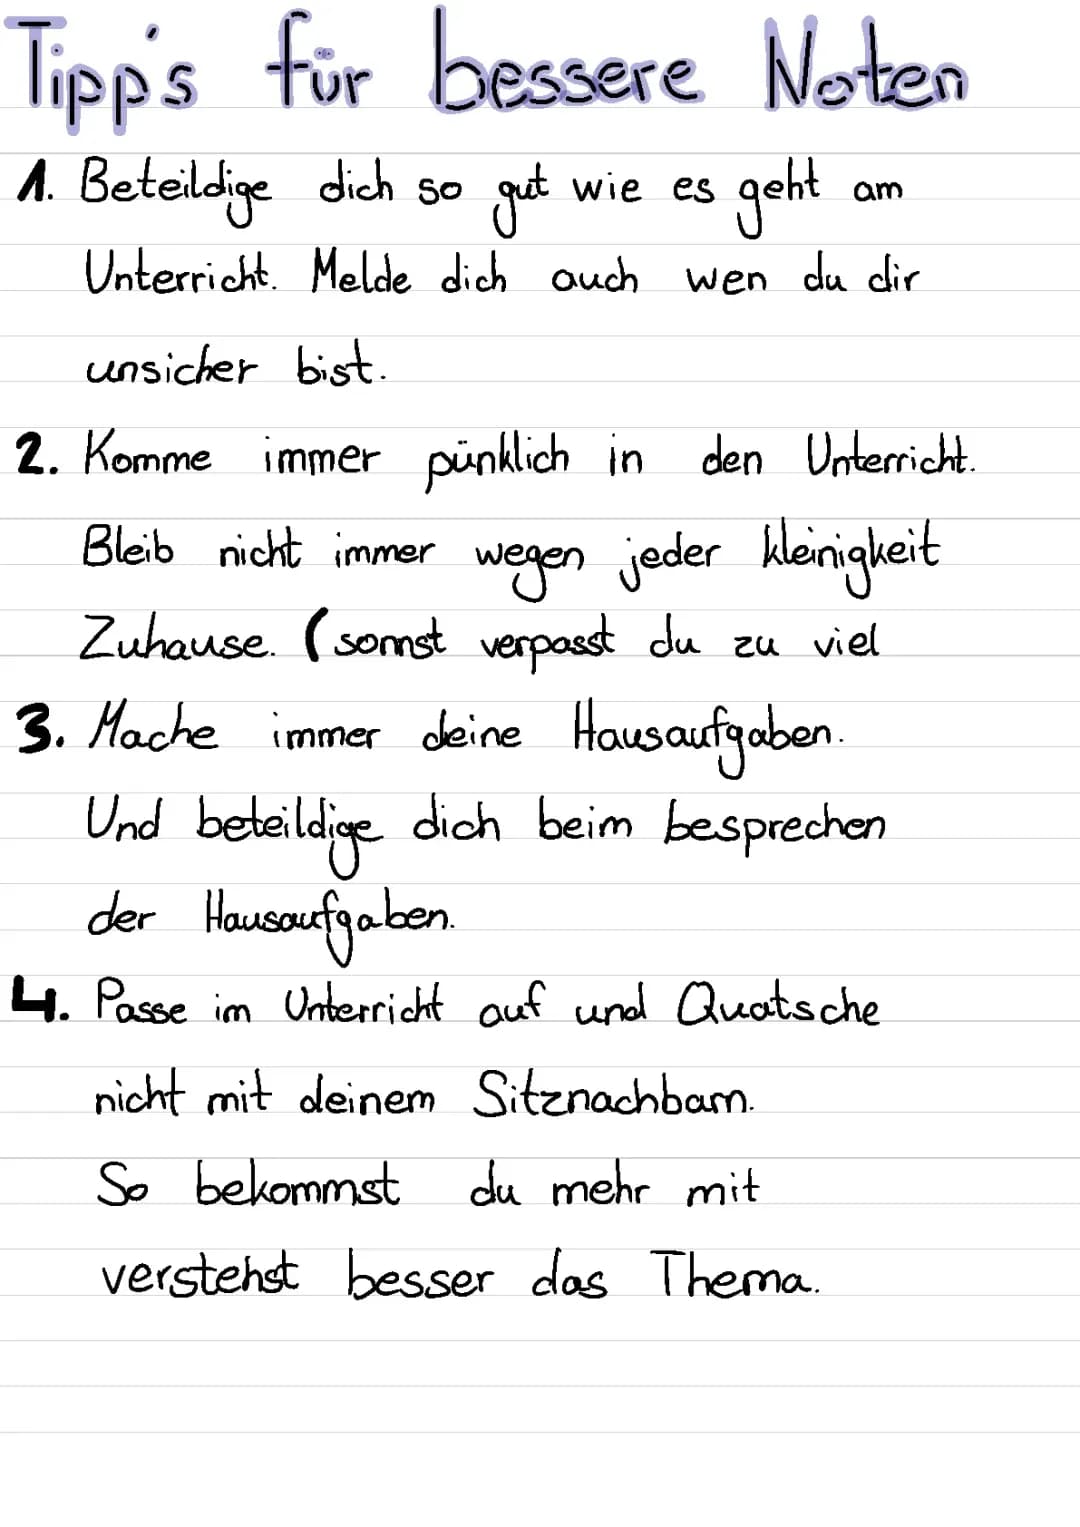 Tipp's für bessere Noten
1. Beteildige dich so gut wie es geht am
Unterricht. Melde dich auch wen du dir
unsicher bist.
2. Komme immer pünklich in den Unterricht.
Bleib nicht immer wegen jeder kleinigkeit
Zuhause. (sonnst verpasst du zu viel
3. Mache immer deine Hausaufgaben.
Und beteildige dich beim besprechen
der Hausaufgaben.
4. Passe im Unterricht auf und Quatsche
nicht mit deinem Sitznachbarn.
So bekommst du mehr mit
verstehst besser das Thema.